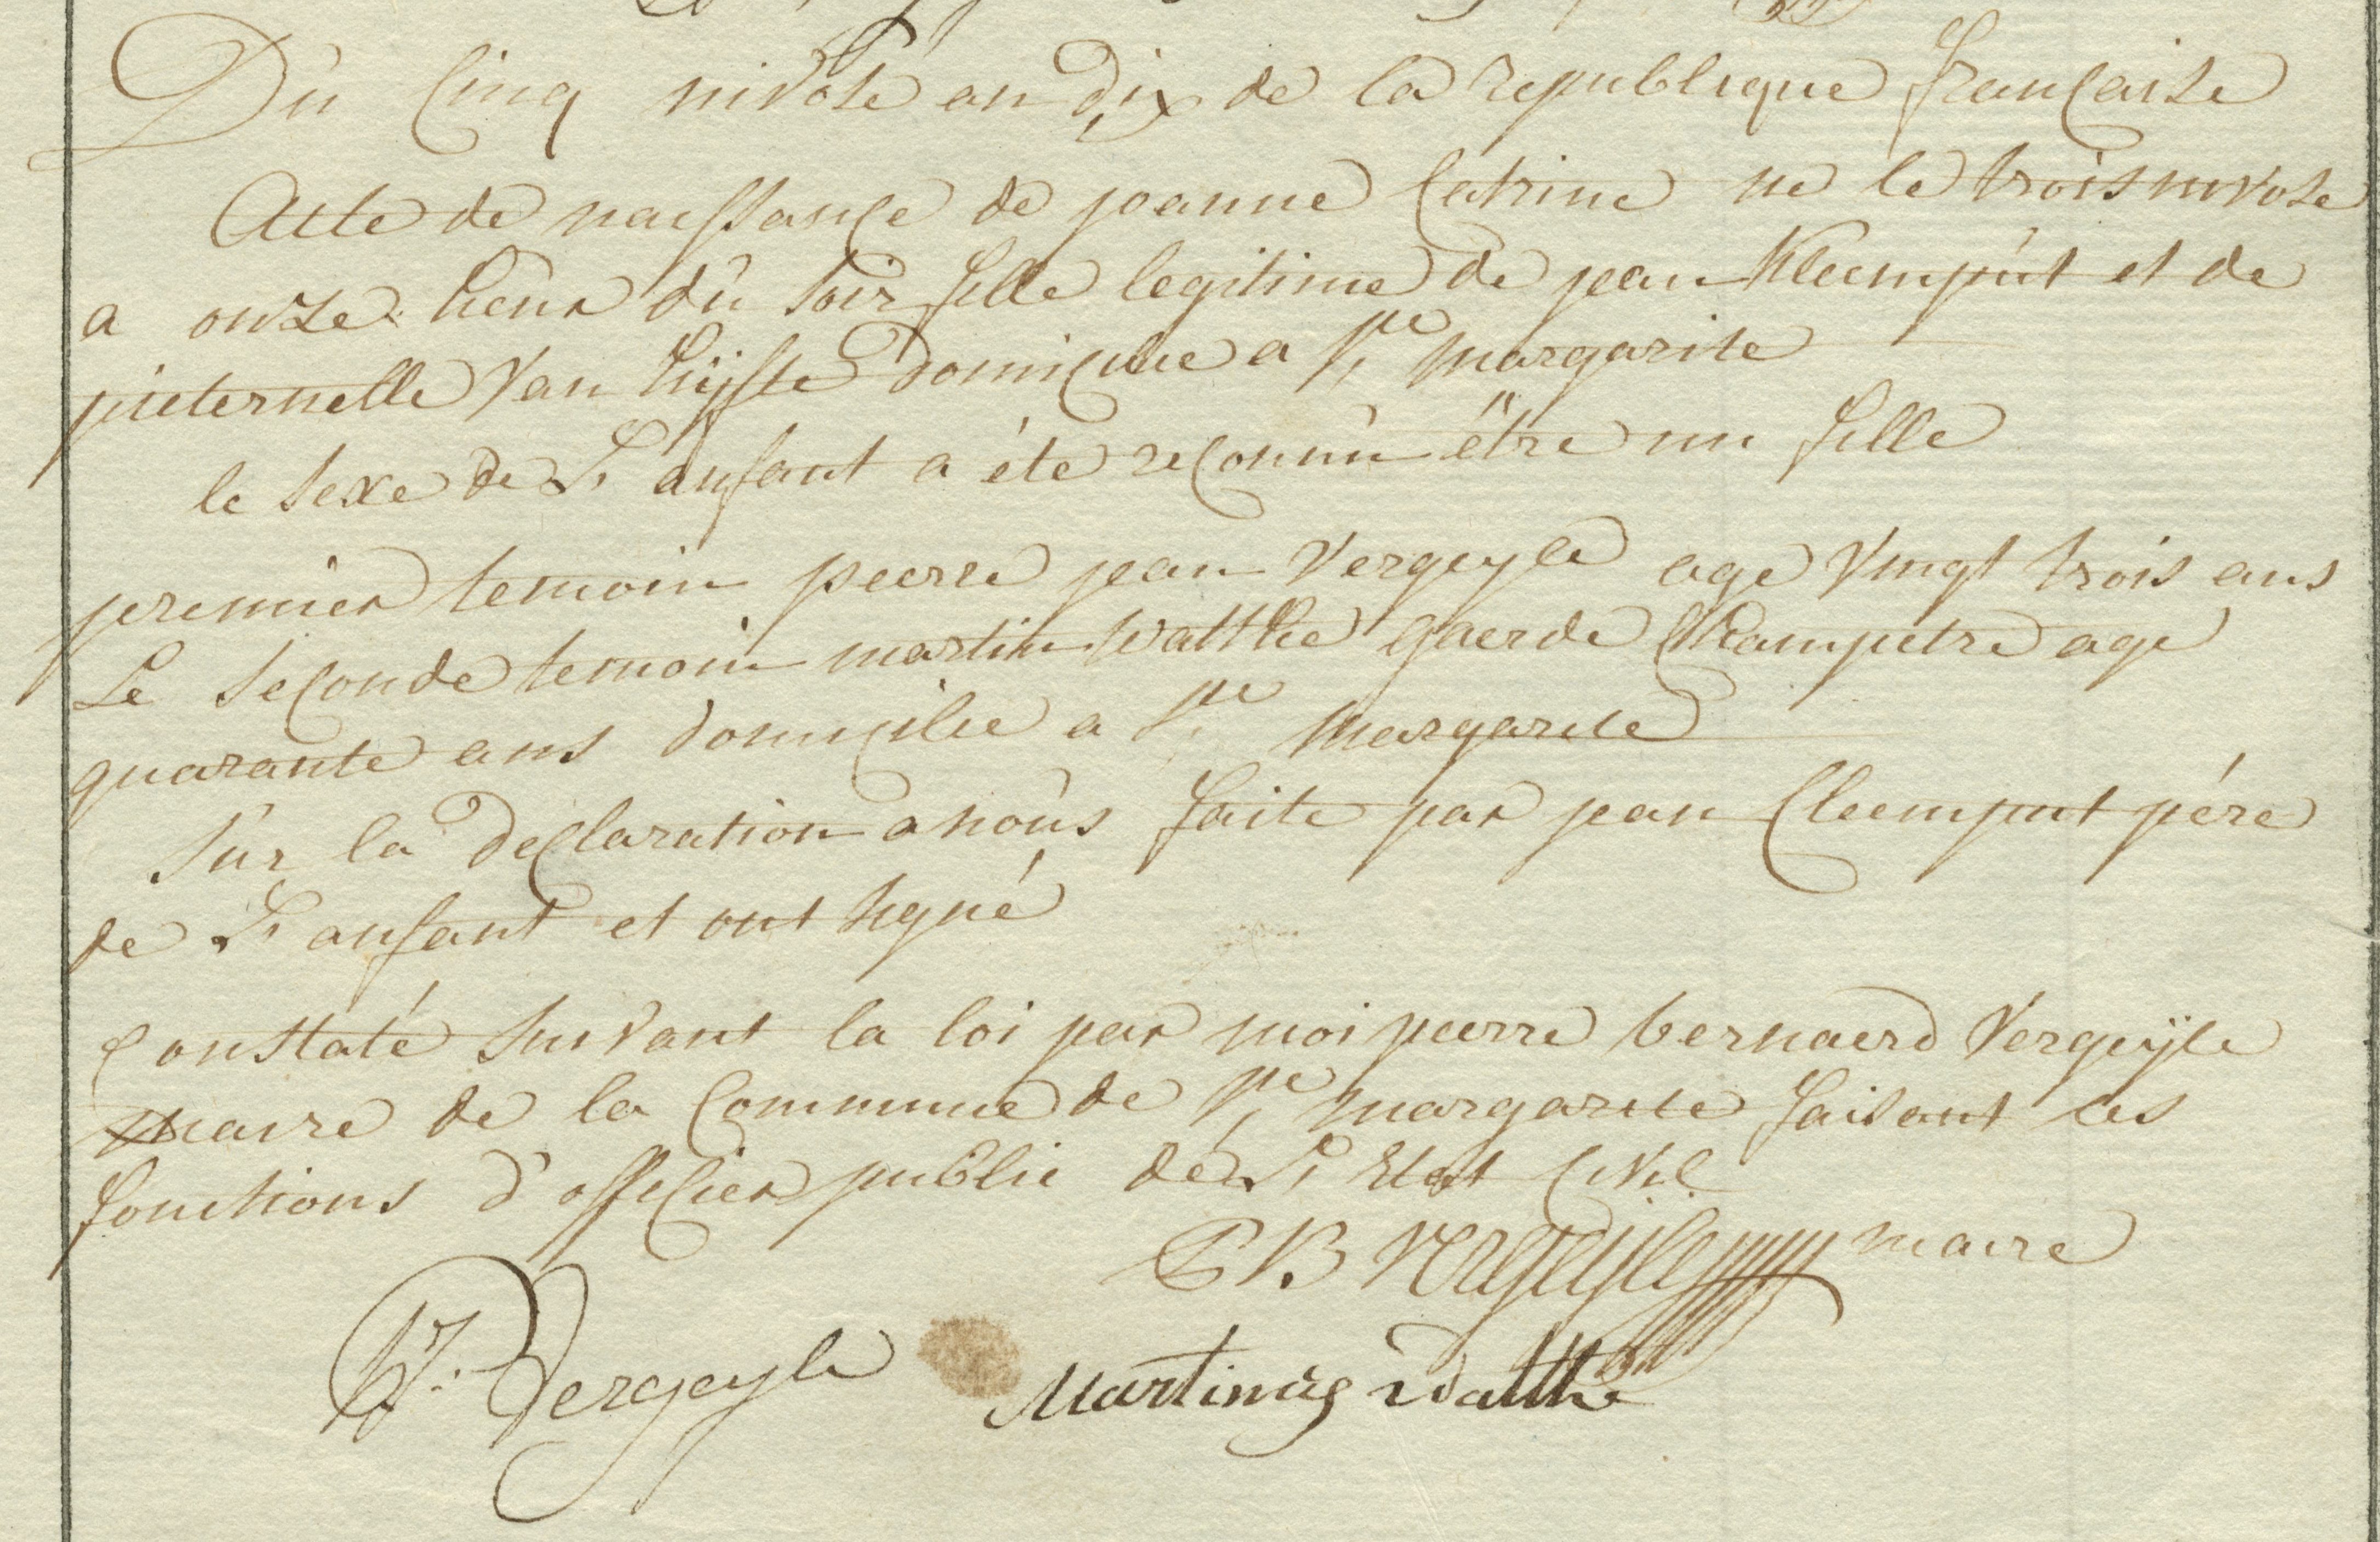 Du Cinq nivose an dix de la republique française
Acte de naissance de joanne Catrine ne le trois nivose
a onze heur du soir fille legitime de jean Kleempút et de
pieternelle Van hÿfte domicilie a Ste Margarite
le sexe de L'anfant a été reconnu être un fille
premier temoin peerre jean Vergeyle age Vingt trois ans
Le seconde temoin martin Watthe gaerde Champetre age
quarante ans domicilie a Ste Margarite
Sur la declaration a nous faite par jean Cleemput pére
de L'anfant et ont signé
Constaté suivant la loi par moi peerre bernaerd Vergeÿle
maire de la Commune de Ste margarite faisant les
fonctions d'officier public de L'Etat Civil
P B Vergeÿle maire
Vergeyle
Martinus Watthe